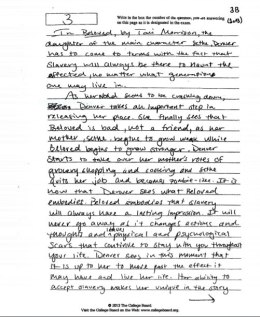 3
Write in the box the number of the question you are answering
on this page as it is designated in the exam.
3B
In Beloved, by Toni Morrison, the
daughter of the main character Sethe, Denver
has to come to terms with the fact that
Slavery will always be there to haunt the
affected, no matter what generation
one may live in.
As her world seems to be crashing down,
Denver takes an important step in
releasing her place. She finally sees that
Beloved is bad, not a friend, as her
mother, Sethe begins to grow weak while
Beloved begins to grow stronger. Denver
starts to take over her mother's roles of
grocery shopping and cooking once Sethe
quits her job and becomes zombie-like. It is
now that Denver sees what Beloved
embodies. Beloved embodies that slavery
will always have a lasting impression. It will
never go away as it changes actions and
thoughts and physical and psychological
Scars that continue to stay with you throughout
your life. Denver sees in this moment that
it is up to her to move past the effect it
may have and live her life. Her ability to
accept slavery makes her unique in the story
© 2013 The College Board.
Visit the College Board on the Web: www.collegeboard.org.